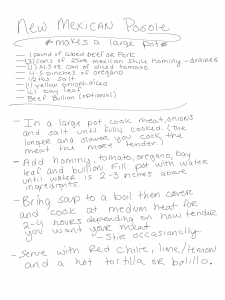 New Mexican Posole
*makes a large pot*
— 1 pound of cubed beef or Pork
— (3) cans of 25oz mexican style hominy - drained
— (1) 14.5oz can of diced tomato
— 4-5 pinches of oregano
— 1/2 tbs salt
— (1) yellow onion diced
— (1) bay leaf
— Beef Bullion (optional)
- In a large pot, cook meat, onions
and salt until fully cooked. (The
longer and slower you cook the
meat the more tender.)
- Add hominy, tomato, oregano, bay
leaf and bullion. Fill pot with water
until water is 2-3 inches above
ingredients.
- Bring soup to a boil then cover
and cook at medium heat for
2-4 hours depending on how tender
you want your meat.
- Stir occasionally
- Serve with Red Chile, lime/lemon
and a hot tortilla or bolillo.